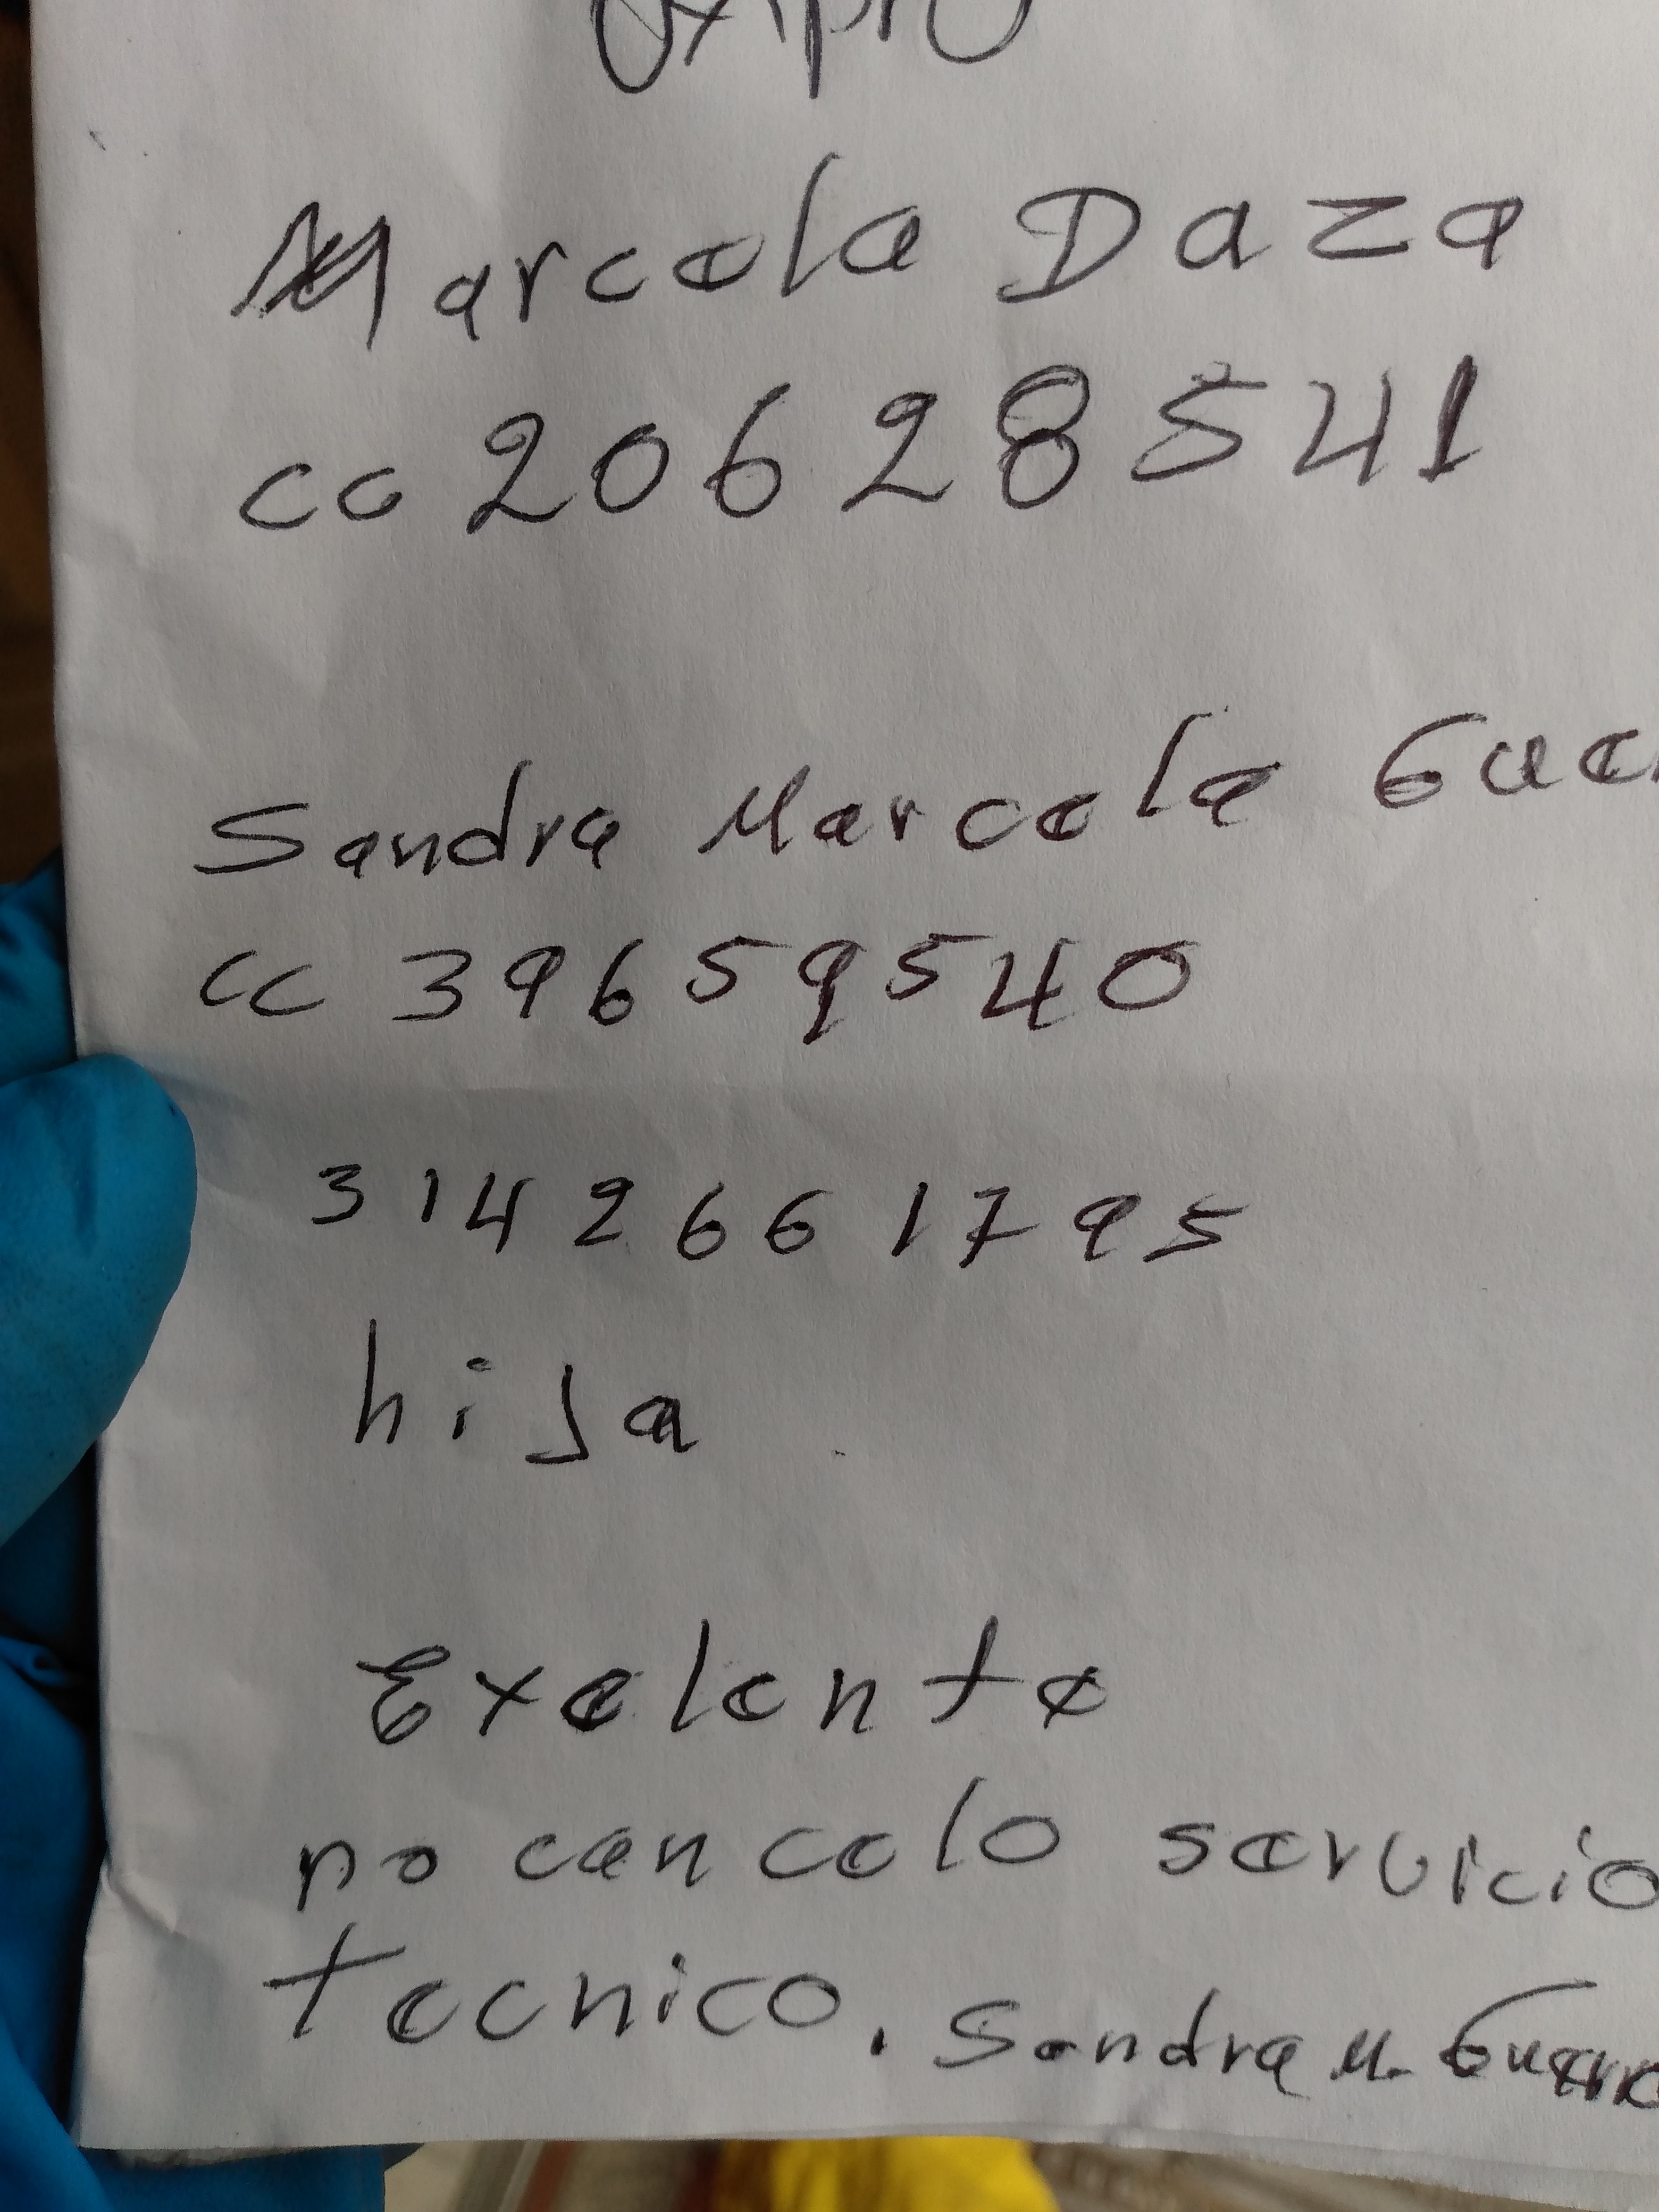 Marcela Daza
cc 20628541
Sandra Marcela
cc 39659540
314 266 1795
hija
Exelente
no cancelo servicio
tecnico. Sandra M. Guerre